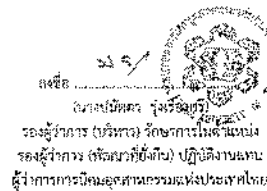 ลงชื่อ
(นางปนัดดา รุ่งเรืองศรี)
รองผู้ว่าการ (บริหาร) รักษาการในตำแหน่ง
รองผู้ว่าการ (พัฒนาที่ยั่งยืน) ปฏิบัติงานแทน
ผู้ว่าการการนิคมอุตสาหกรรมแห่งประเทศไทย